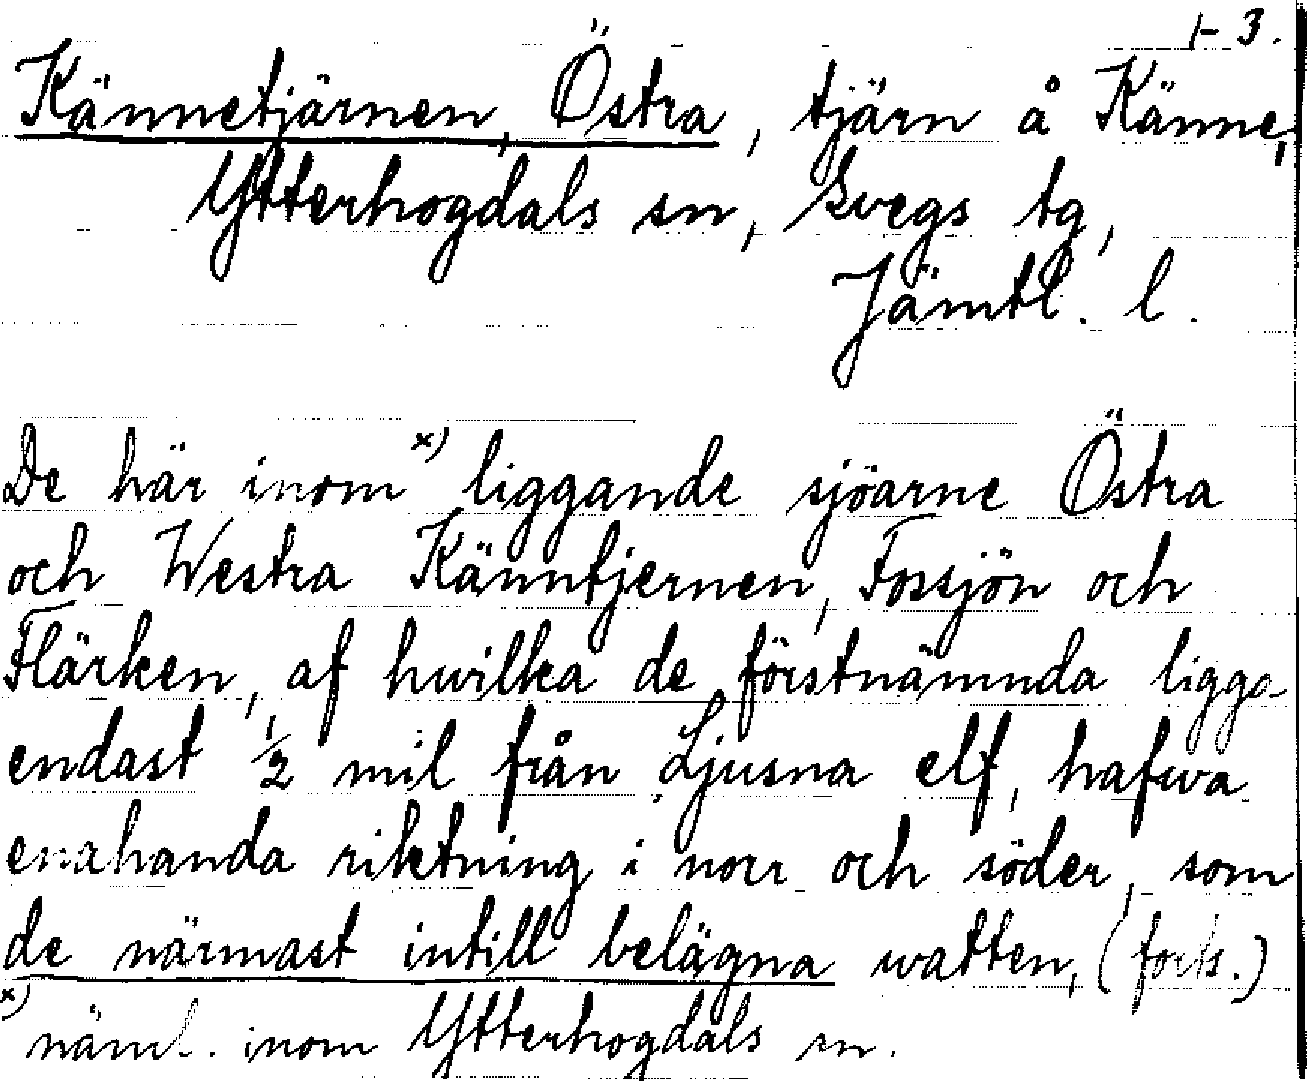 1-3.
Kännetjärnen, Östra, tjärn å Känne,
Ytterhogdals sn, Svegs tg,
Jämtl. l.
De här inom x) liggande sjöarne Östra
och Westra Känntjernen, Fossjön och
Flärken, af hwilka de förstnämnda ligga
endast 1/2 mil från Ljusna elf, hafwa
enahanda riktning i norr och söder, som
de närmast intill belägna watten, (forts.)
x) näml. inom Ytterhogdals sn.